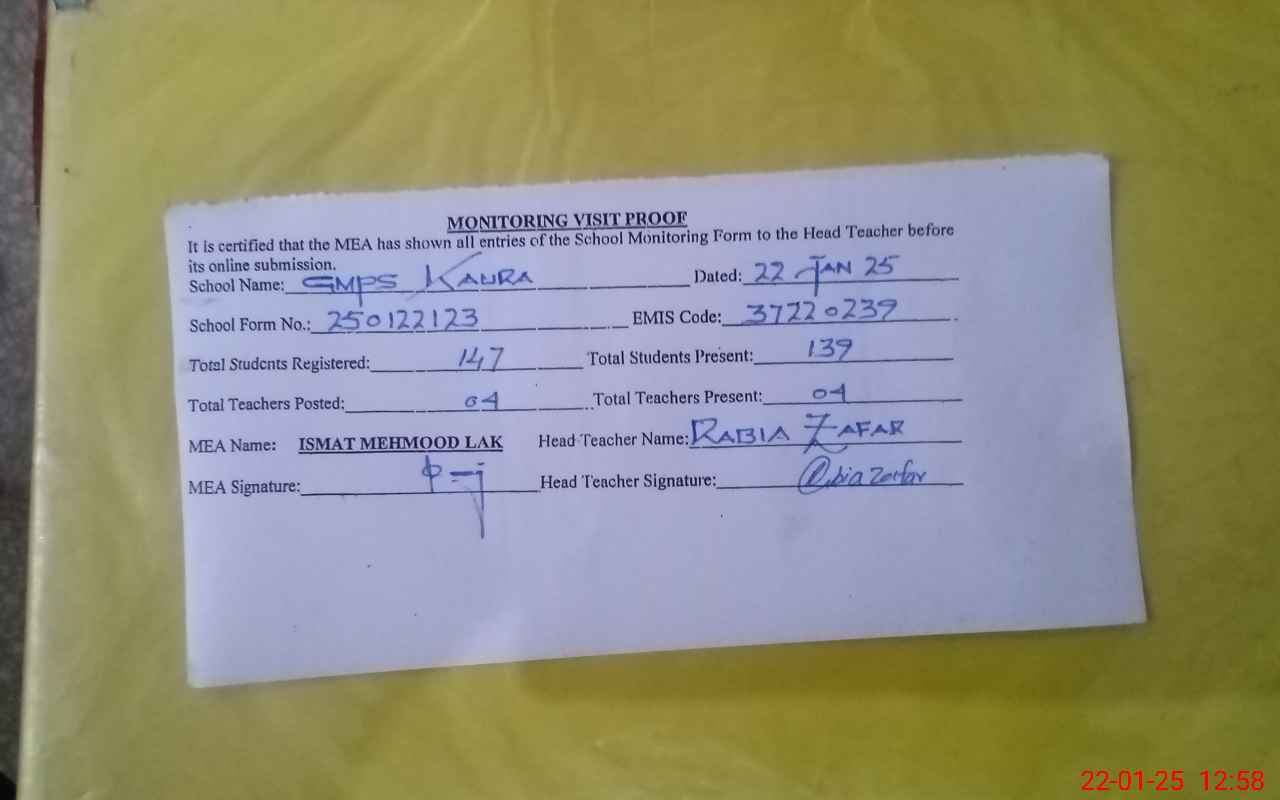 MONITORING VISIT PROOF
It is certified that the MEA has shown all entries of the School Monitoring Form to the Head Teacher before
its online submission.
School Name: GMPS KAURA Dated: 22 JAN 25
School Form No.: 250122123 EMIS Code: 37220239
Total Students Registered: 147 Total Students Present: 139
Total Teachers Posted: 04 Total Teachers Present: 04
MEA Name: ISMAT MEHMOOD LAK Head Teacher Name: RABIA ZAFAR
MEA Signature: Head Teacher Signature: Rabia Zafar
22-01-25 12:58